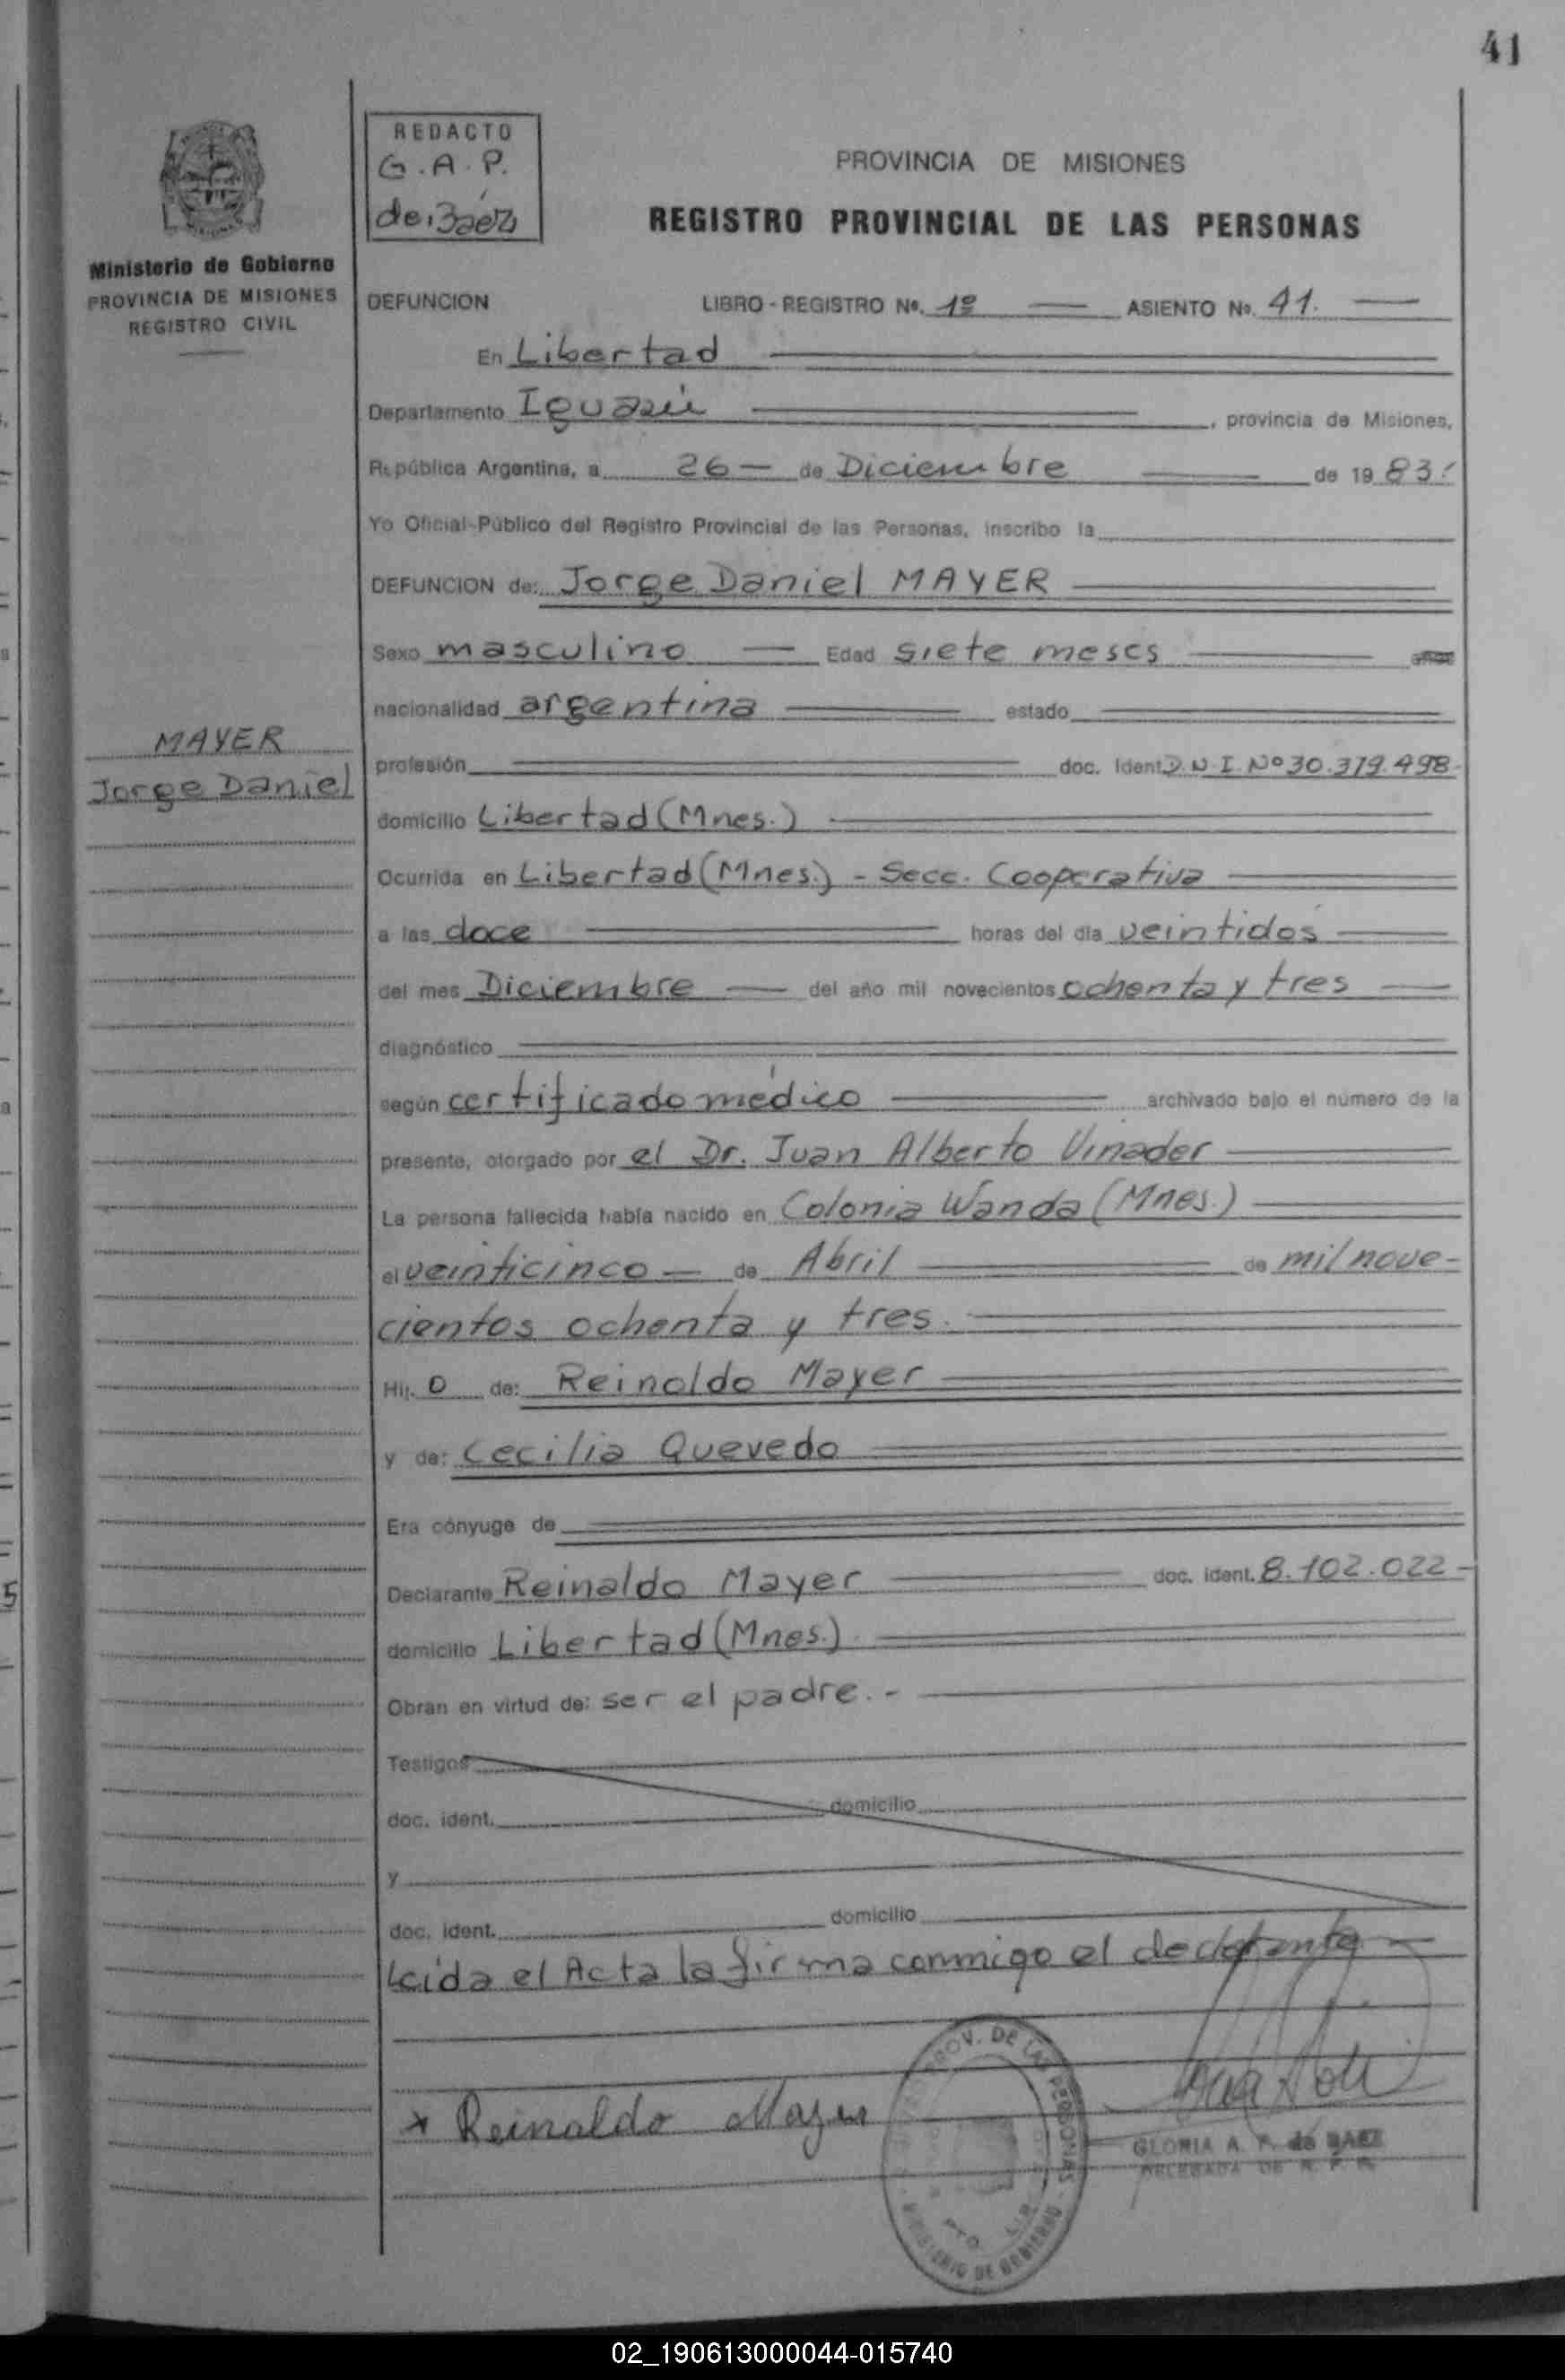 41
REDACTO
G.A.P.
de Báez
PROVINCIA DE MISIONES
REGISTRO PROVINCIAL DE LAS PERSONAS
Ministerio de Gobierno
PROVINCIA DE MISIONES
REGISTRO CIVIL
DEFUNCION LIBRO - REGISTRO No. 1º ASIENTO No. 41.
En Libertad
Departamento Iguazú, provincia de Misiones,
República Argentina, a 26 de Diciembre de 1983.
Yo Oficial Público del Registro Provincial de las Personas, inscribo la
DEFUNCION de: Jorge Daniel MAYER
Sexo masculino Edad siete meses años
nacionalidad argentina estado
MAYER
Jorge Daniel
profesión doc. Ident. D.N.I. Nº 30.379.498-
domicilio Libertad (Mnes.)
Ocurrida en Libertad (Mnes.) - Secc. Cooperativa
a las doce horas del día veintidós
del mes Diciembre del año mil novecientos ochenta y tres
diagnóstico
según certificado médico archivado bajo el número de la
presente, otorgado por el Dr. Juan Alberto Vinader
La persona fallecida había nacido en Colonia Wanda (Mnes.)
el veinticinco de Abril de mil nove-
cientos ochenta y tres.
Hij. o de: Reinaldo Mayer
y de: Cecilia Quevedo
Era cónyuge de
Declarante Reinaldo Mayer doc. ident. 8.102.022-
domicilio Libertad (Mnes.)
Obran en virtud de: ser el padre.-
Testigos
doc. ident. domicilio
y
doc. ident. domicilio
Leida el Acta la firma conmigo el declarante
PROV. DE LAS PERSONAS
x Reinaldo Mayer
GLORIA A. P. de BAEZ
DELEGADA DE R. P. P.
MINISTERIO DE GOBIERNO
5
02_190613000044-015740